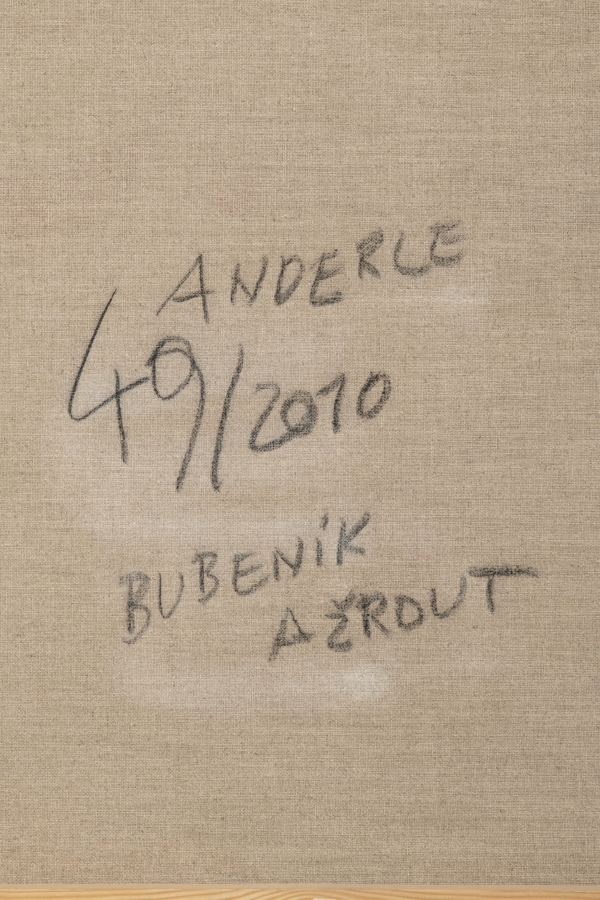 ANDERLE
49/2010
BUBENÍK
A ŽROUT